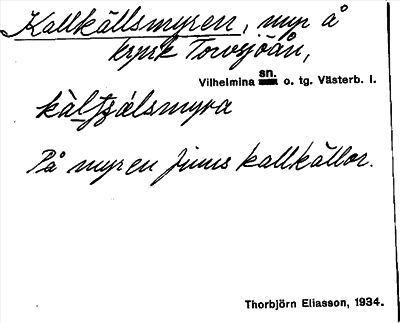 Kallkällsmyren, myr å
krpsk Torvsjöån,
Vilhelmina sn. o. tg. Västerb. l.
kàlʃɟálsmyra
På myren finns kallkällor.
Thorbjörn Eliasson, 1934.